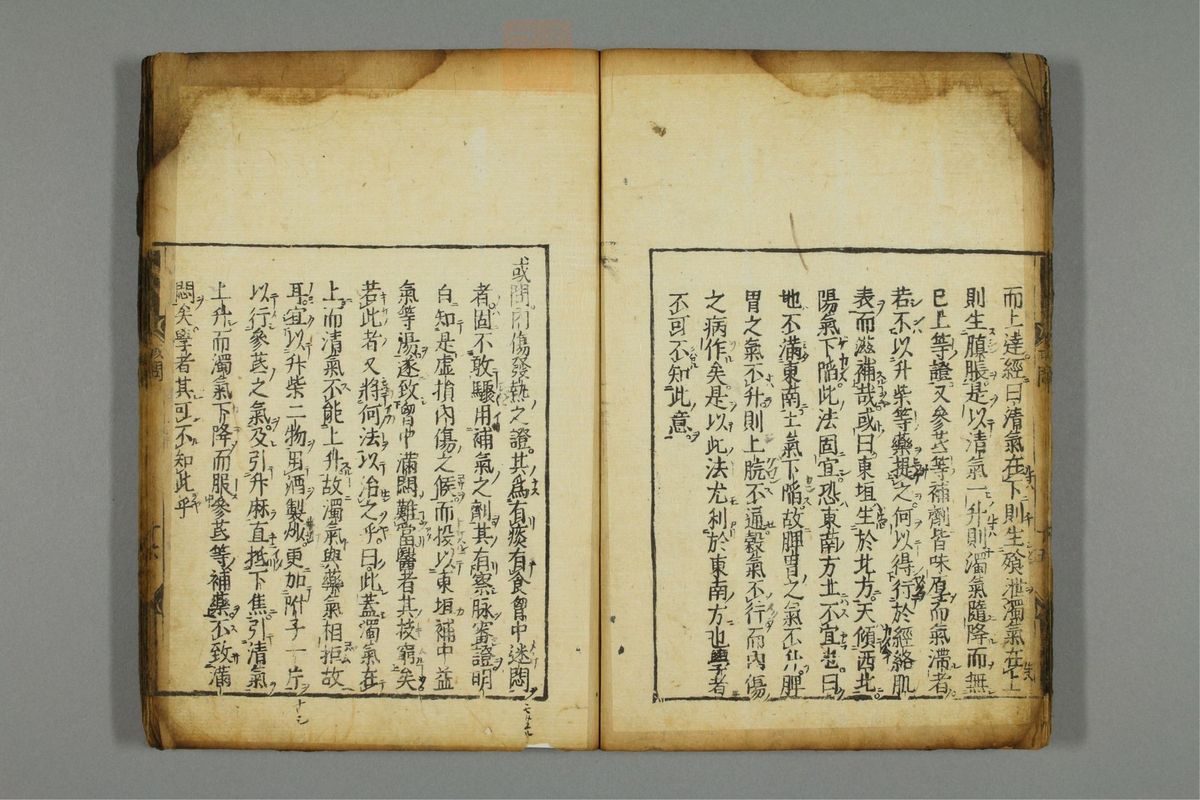 而上達經曰清氣在下則生飱泄濁氣在上
則生䐜脹是以清氣一升則濁氣隨降而無
已上等證又參芪等補劑皆味厚而氣滯者
若不以升柴等藥提之何以得行於經絡肌
表而滋補哉或曰東垣生於北方天傾西北
陽氣下陷此法固宜恐東南方士不宜也曰
地不滿東南士氣下陷故脾胃之氣不升脾
胃之氣不升則上脘不通穀氣不行而內傷
之病作矣是以此法尤利於東南方也學者
不可不知此意
或問內傷發熱之證其爲有痰有食胷中迷悶
者固不敢驟用補氣之劑其有察脉審證明
白知是虛損內傷之候而投以東垣補中益
氣等湯遂致胷中滿悶難當醫者其技窮矣
若此者又將何法以治之乎曰此蓋濁氣在
上而清氣不能上升故濁氣與藥氣相拒故
耳宜以升柴二物用酒製炒更加附子一片
以行參芪之氣及引升麻直抵下焦引清氣
上升而濁氣下降而服參芪等補藥不致滿
悶矣學者其可不知此乎